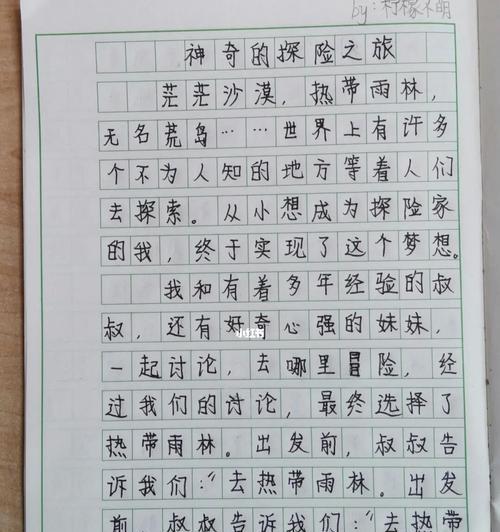 by:柠檬不萌
神奇的探险之旅
茫茫沙漠，热带雨林，
无名荒岛……世界上有许多
个不为人知的地方等着人们
去探索。从小想成为探险家
的我，终于实现了这个梦想。
我和有着多年经验的叔
叔，还有好奇心强的妹妹，
一起讨论，去哪里冒险，经
过我们的讨论，最终选择了
热带雨林。出发前，叔叔告
诉我们：“去热带雨林。出发
前，叔叔告诉我们：“去热带
小红书